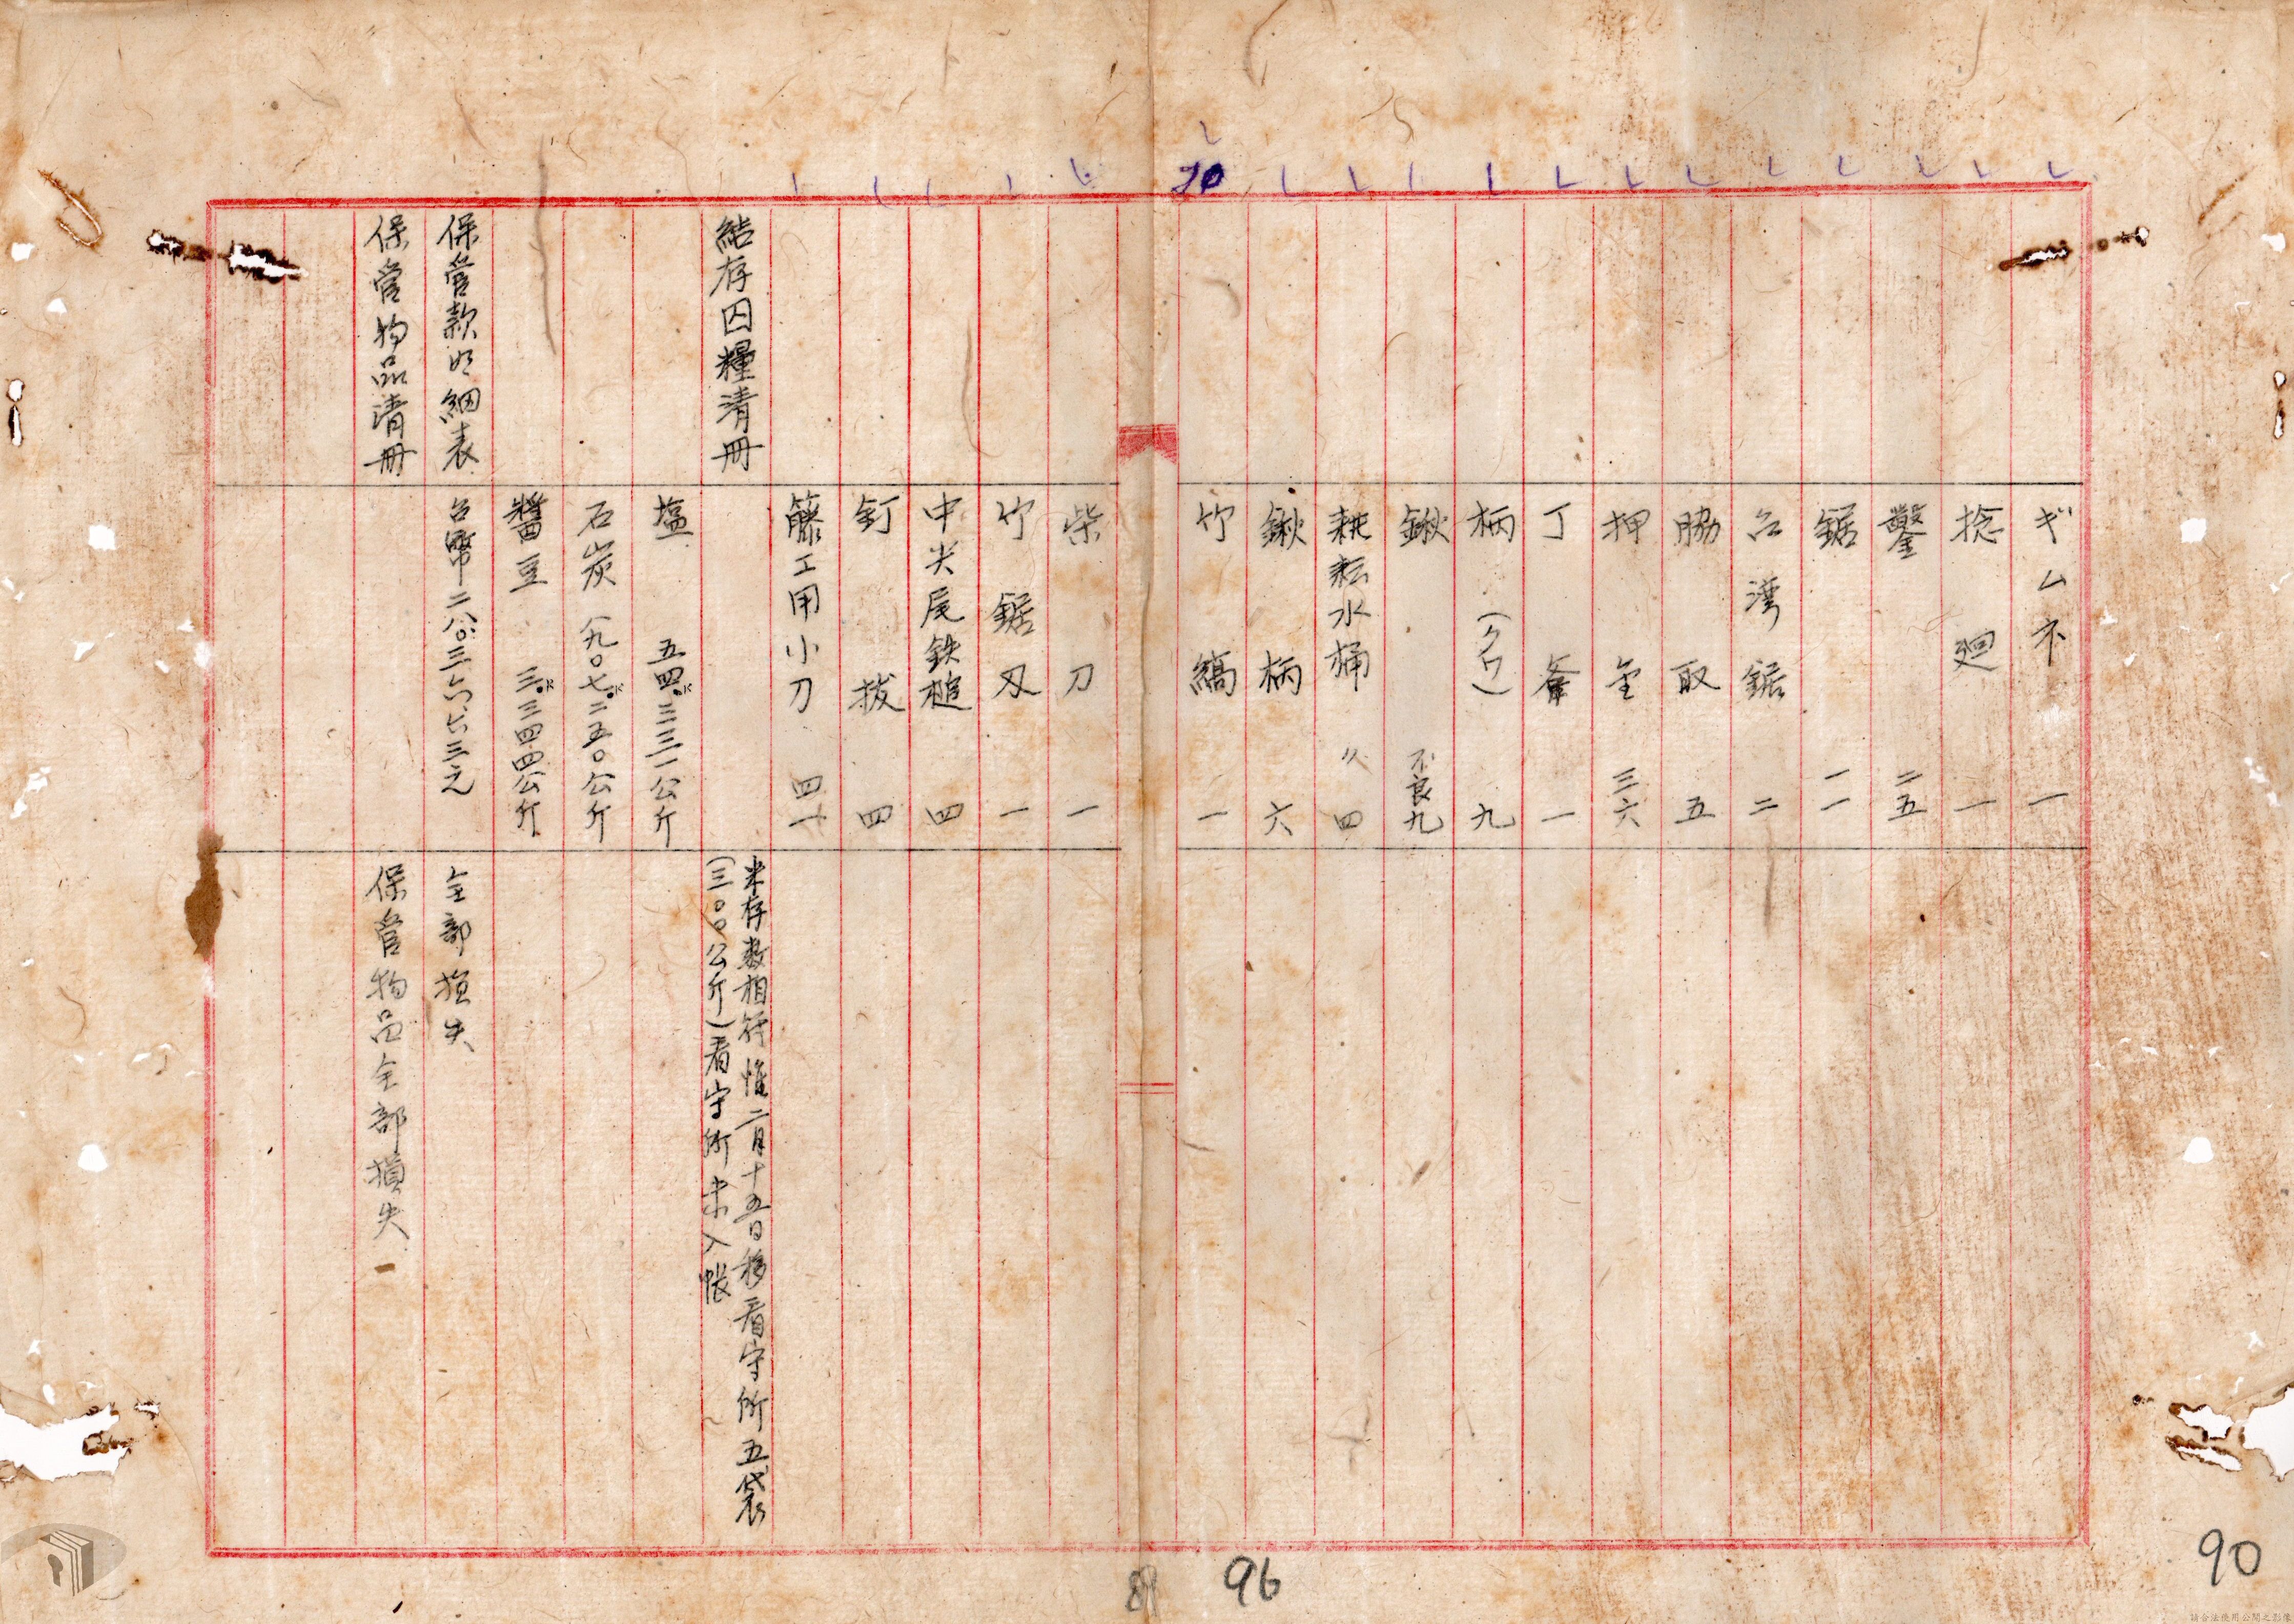 ギムネ 一
捻廻 一
鑿 二五
鋸 一一
台湾鋸 二
脇取 五
押金 三六
丁斧 一
柄(クワ) 九
鍬 不良九
耕耘水桶 〃四
鍬柄 六
竹縞 一
柴刀 一
竹鋸刃 一
中尖尾鉄槌 四
釘拔 四
籐工用小刀 四一
結存囚糧清冊
米存数相符惟二月十五日移看守所五袋
(三〇〇公斤)看守所未入帳
塩 五四.K三三一公斤
石炭 八九〇七.K二五〇公斤
醬豆 三.K三四四公斤
保管款明細表 台幣二八〇三六六三元 全部損失
保管物品清冊 保管物品全部損失
70
89
96
90